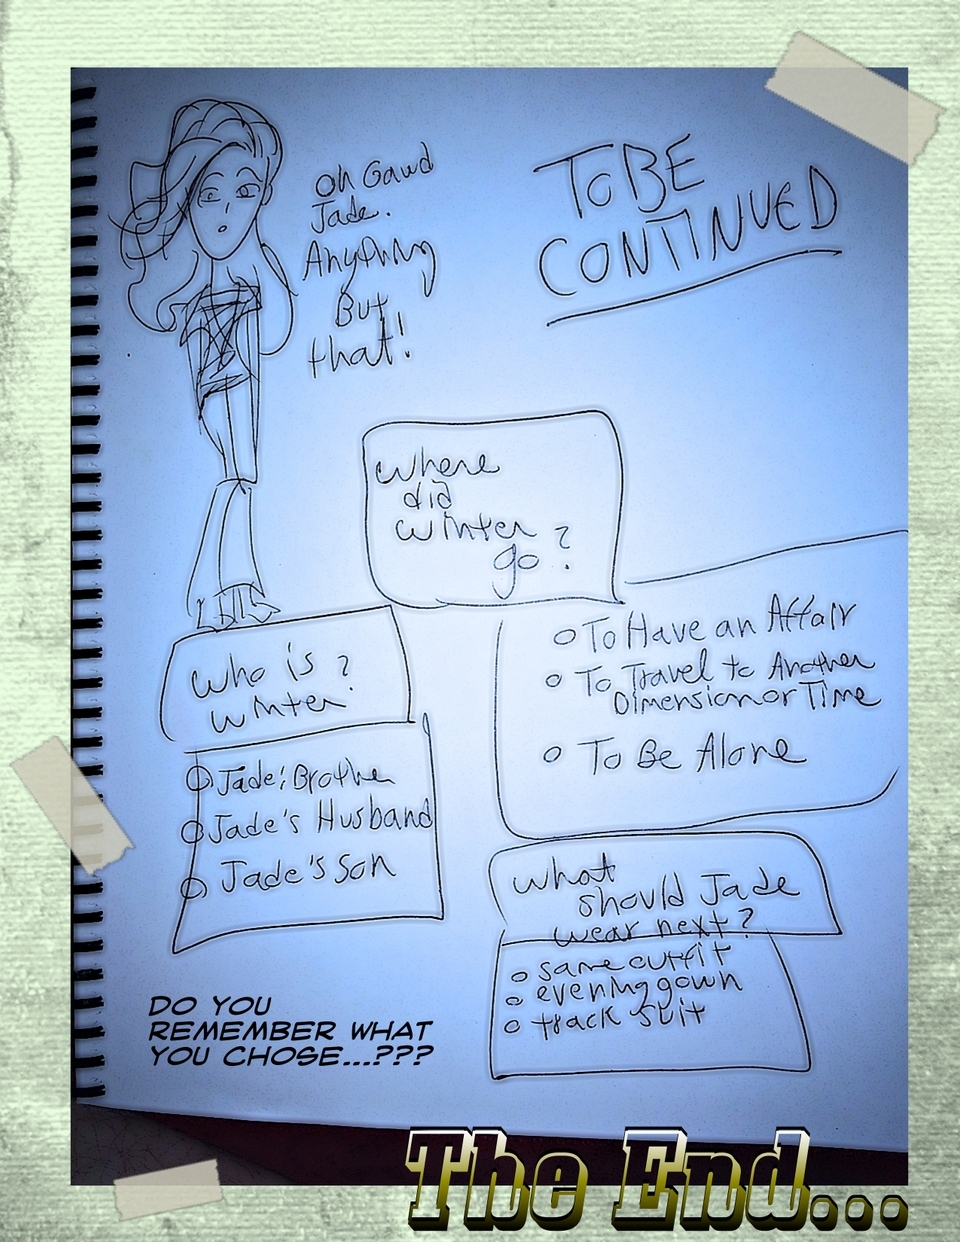 Oh Gawd
Jade.
Anything
But
that!
TO BE
CONTINUED
where
did
winter
go?
who is
winter?
Jade's Brother
Jade's Husband
Jade's Son
To Have an Affair
To Travel to Another
Dimension or Time
To Be Alone
what
should Jade
wear next?
same outfit
evening gown
track suit
DO YOU
REMEMBER WHAT
YOU CHOSE...???
The End...